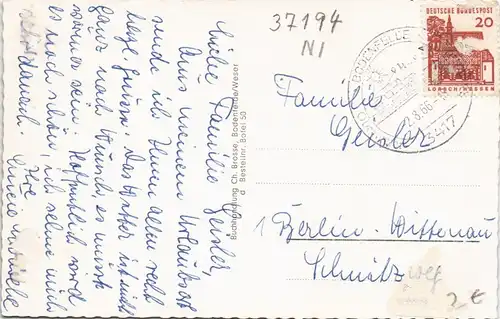 37194
NI
DEUTSCHE BUNDESPOST
20
LORSCH/HESSEN
BODENFELDE
3417
Liebe Familie Geisler,
Aus meinem Urlaubsort
sende ich Ihnen allen recht
herzl. Grüße. Das Wetter ist nicht
ganz nach Wunsch, es müßte
wärmer sein. Hoffentlich wird
es noch schön, ich sehne mich
danach. Ihre
Buchhandlung Ch. Brosse, Bodenfelde/Weser
Bestellnr. Botel 50
Familie
Geisler
1 Berlin-Wittenau
2€